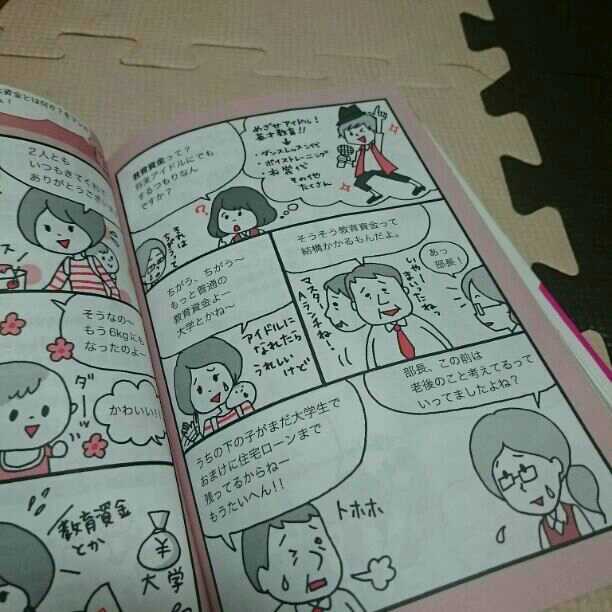 2人とも
いつもきてくれて
ありがとうございま
そうなの〜
もう6kgにも
なったのよ〜
ダー
かわいい!!
教育資金
とか
¥
大学
教育資金って?
将来アイドルにでも
するつもりなん
ですか?
めざせアイドル!
英才教育!!
・ダンスレッスン代
・ボイストレーニング
・お栄代
その他
たくさん
?
ちがう、ちがう〜
もっと普通の
教育資金よ〜
大学とかね〜
アイドルに
なれたら
うれしい
けど
そうそう教育資金って
結構かかるもんだよ。
あっ
部長!
いやまいったねっ
マスター
Aランチね!
部長、この前は
老後のこと考えてるって
いってましたよね?
うちの下の子がまだ大学生で
おまけに住宅ローンまで
残ってるからね〜
もうたいへん!!
トホホ